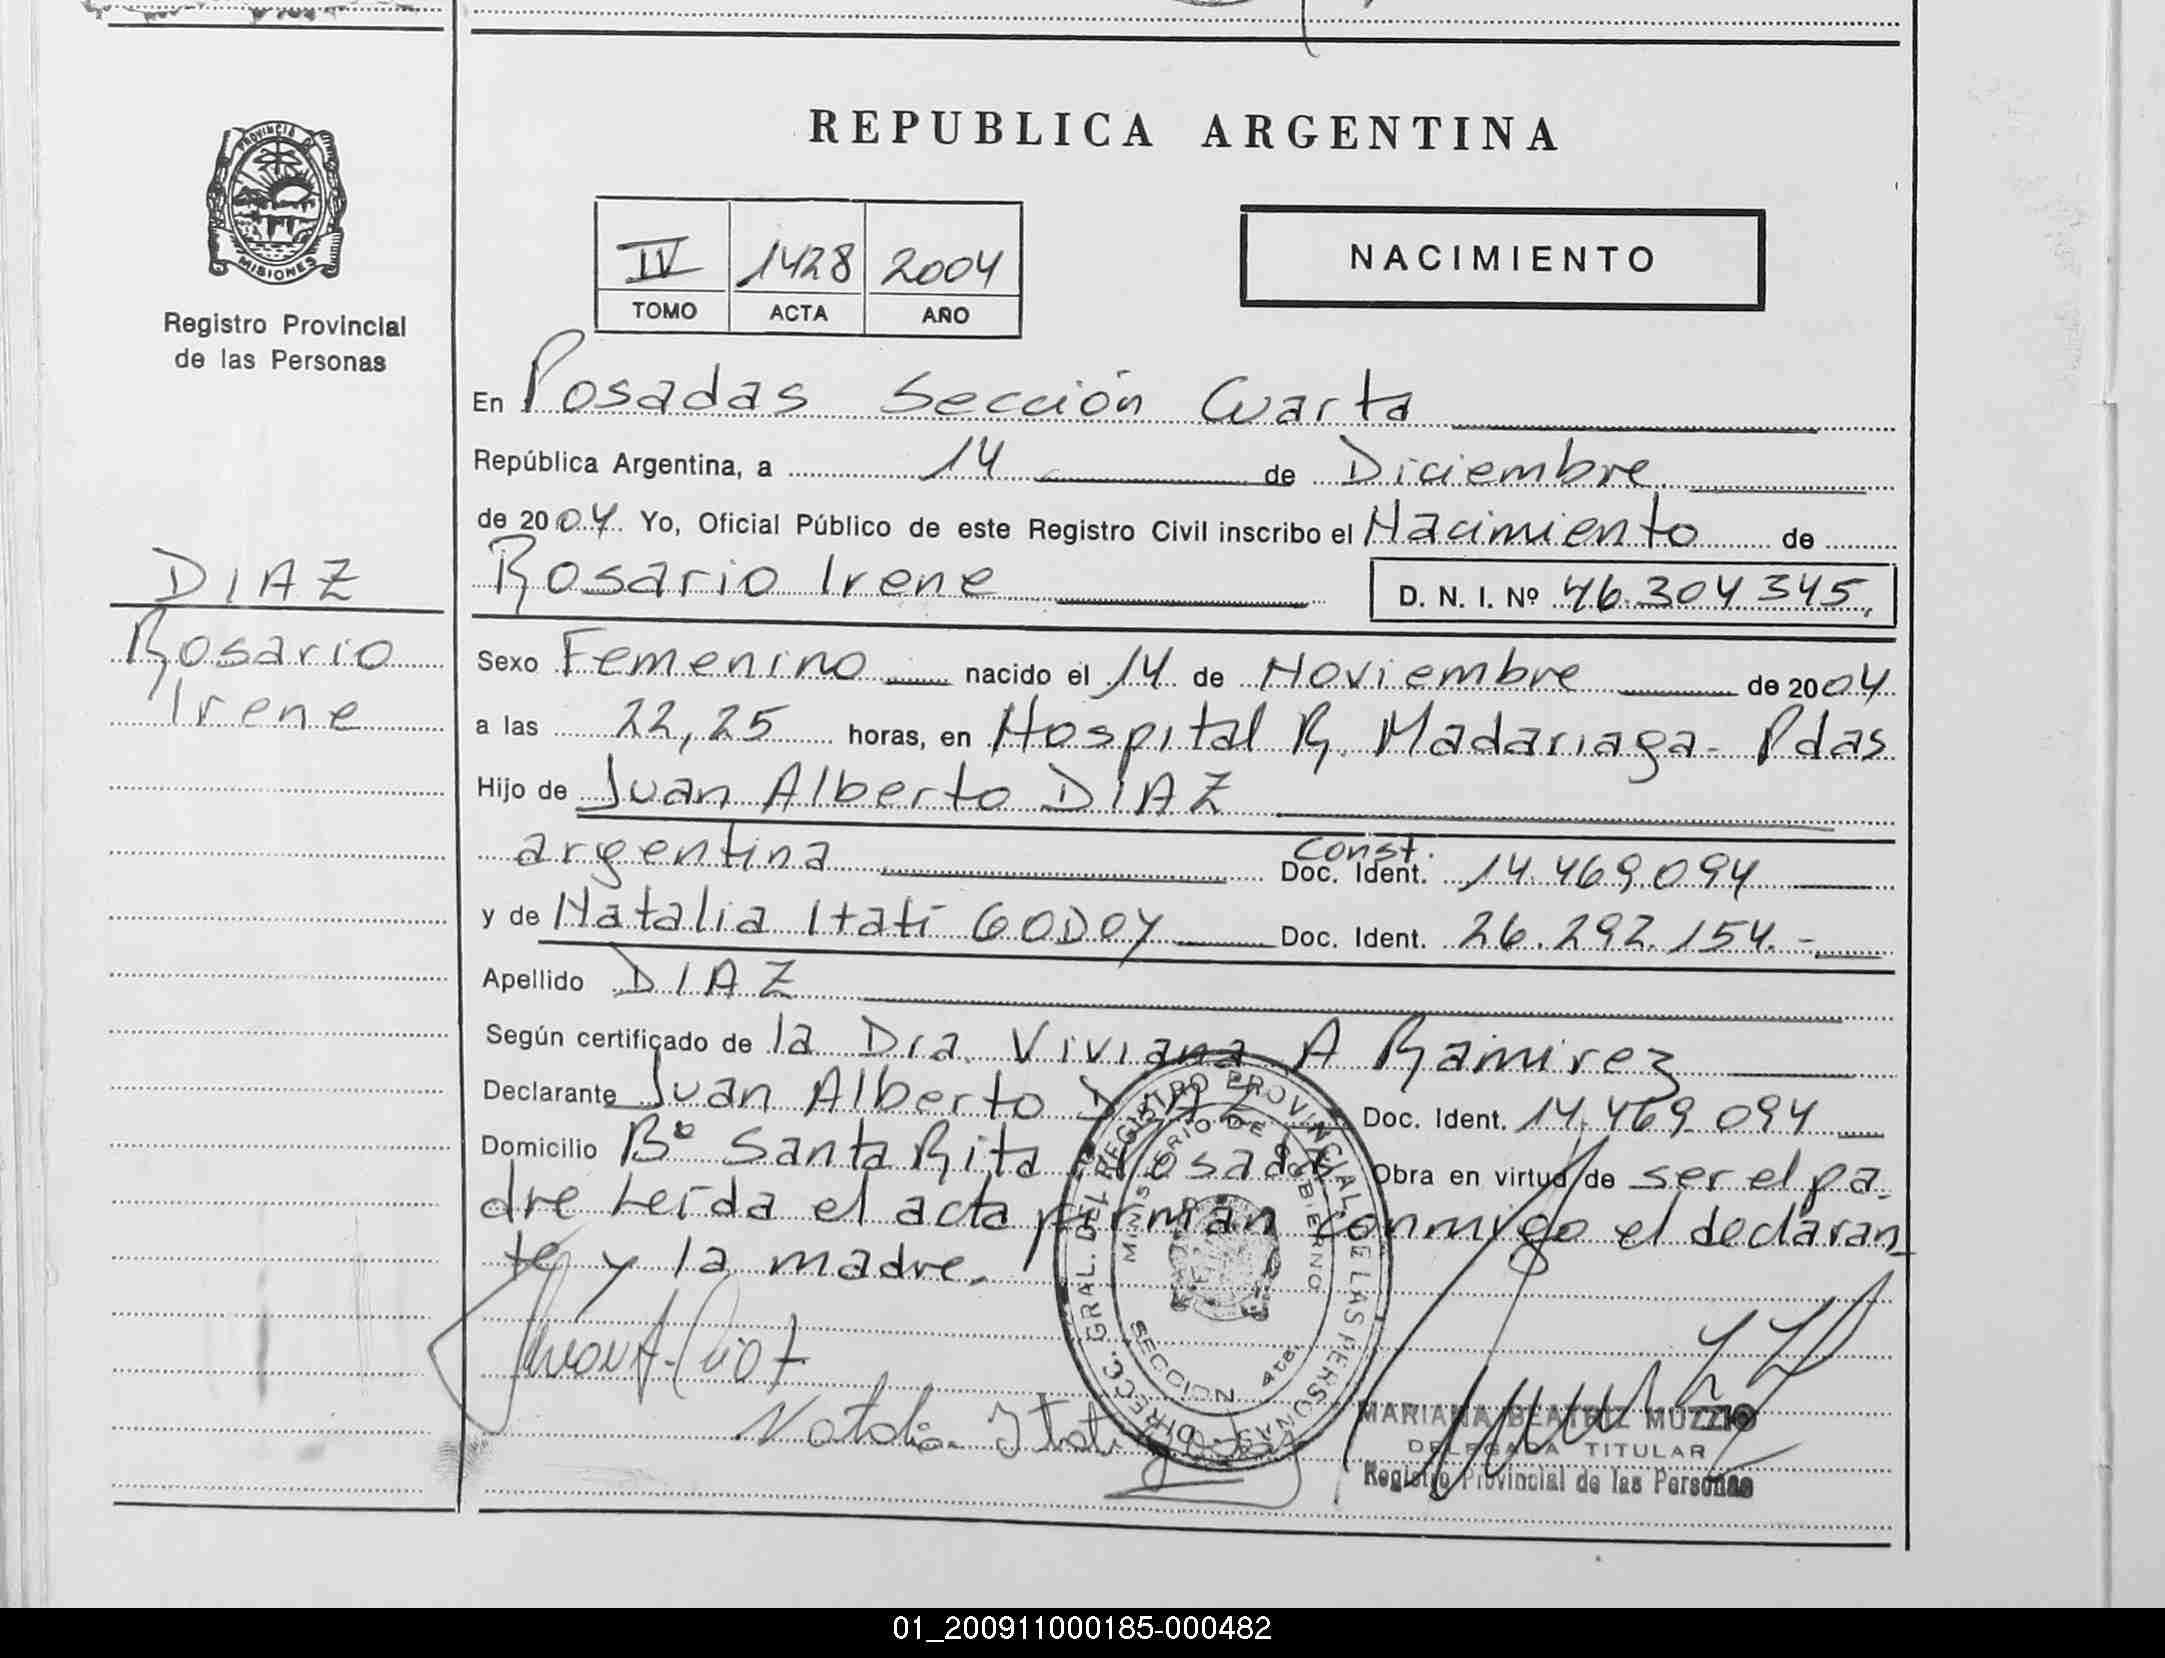 REPUBLICA ARGENTINA
PROVINCIA DE MISIONES
Registro Provincial
de las Personas
IV 1428 2004
TOMO ACTA AÑO
NACIMIENTO
En Posadas Sección Cuarta
República Argentina, a 14 de Diciembre
de 2004 Yo, Oficial Público de este Registro Civil inscribo el Nacimiento de
Rosario Irene D. N. I. Nº 46.304 345.
DIAZ
Rosario
Irene
Sexo Femenino nacido el 14 de Noviembre de 2004
a las 22,25 horas, en Hospital R. Madariaga - Pdas
Hijo de Juan Alberto DIAZ
argentina Const. Doc. Ident. 14.469.094
y de Natalia Itatí GODOY Doc. Ident. 26.292.154.-
Apellido DIAZ
Según certificado de la Dra. Viviana A Ramirez
Declarante Juan Alberto DIAZ Doc. Ident. 14.469.094
Domicilio Bº Santa Rita Posadas Obra en virtud de ser el pa-
dre Leída el acta firman conmigo el declaran-
te y la madre.
Natalia Itati Godoy
DIRECC. GRAL. DEL REGISTRO PROVINCIAL DE LAS PERSONAS
MINISTERIO DE GOBIERNO
SECCION 4ta.
MARIANA BEATRIZ MUZZIO
DELEGADA TITULAR
Registro Provincial de las Personas
01_200911000185-000482